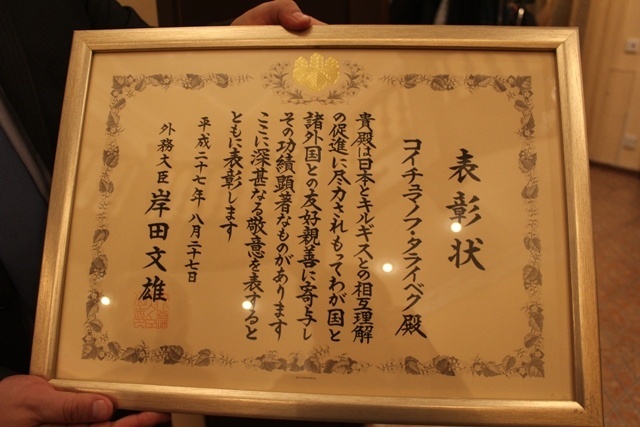 表彰状
コイチュマノフ・タライベグ殿
貴殿は日本とキルギスとの相互理解
の促進に尽力されもってわが国と
諸外国との友好親善に寄与し
その功績顕著なものがあります
ここに深甚なる敬意を表すると
ともに表彰します
平成二十七年八月二十七日
外務大臣 岸田文雄